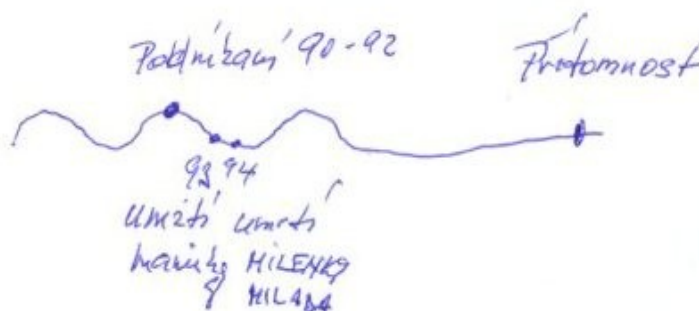 Podnikání 90-92
Přítomnost
93 94
úmrtí úmrtí
maminky MILENKY
MILADA